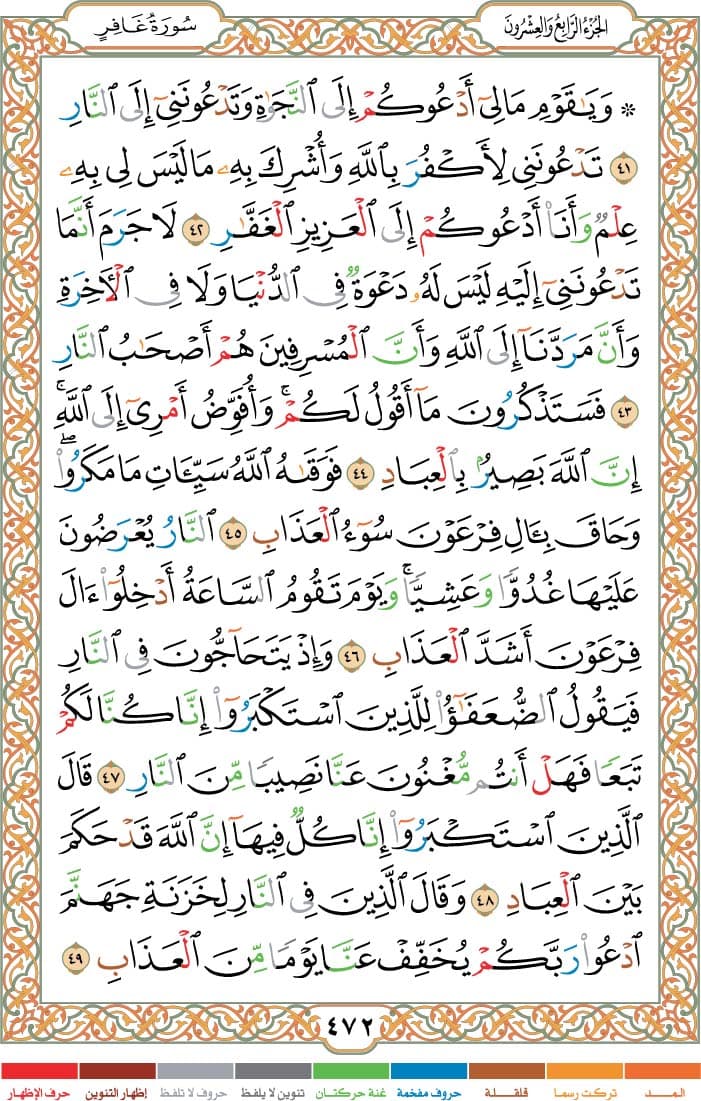 سُورَةُ غَافِرٍ
الجُزْءُ الرَّابِعُ وَالعِشْرُونَ
۞ وَيَٰقَوْمِ مَا لِىٓ أَدْعُوكُمْ إِلَى ٱلنَّجَوٰةِ وَتَدْعُونَنِىٓ إِلَى ٱلنَّارِ
٤١ تَدْعُونَنِى لِأَكْفُرَ بِٱللَّهِ وَأُشْرِكَ بِهِۦ مَا لَيْسَ لِى بِهِۦ
عِلْمٌ وَأَنَا۠ أَدْعُوكُمْ إِلَى ٱلْعَزِيزِ ٱلْغَفَّٰرِ ٤٢ لَا جَرَمَ أَنَّمَا
تَدْعُونَنِىٓ إِلَيْهِ لَيْسَ لَهُۥ دَعْوَةٌ فِى ٱلدُّنْيَا وَلَا فِى ٱلْأَخِرَةِ
وَأَنَّ مَرَدَّنَآ إِلَى ٱللَّهِ وَأَنَّ ٱلْمُسْرِفِينَ هُمْ أَصْحَٰبُ ٱلنَّارِ
٤٣ فَسَتَذْكُرُونَ مَآ أَقُولُ لَكُمْ ۚ وَأُفَوِّضُ أَمْرِىٓ إِلَى ٱللَّهِ ۚ
إِنَّ ٱللَّهَ بَصِيرٌۢ بِٱلْعِبَادِ ٤٤ فَوَقَىٰهُ ٱللَّهُ سَيِّـَٔاتِ مَا مَكَرُوا۟ ۖ
وَحَاقَ بِـَٔالِ فِرْعَوْنَ سُوٓءُ ٱلْعَذَابِ ٤٥ ٱلنَّارُ يُعْرَضُونَ
عَلَيْهَا غُدُوًّا وَعَشِيًّا ۖ وَيَوْمَ تَقُومُ ٱلسَّاعَةُ أَدْخِلُوٓا۟ ءَالَ
فِرْعَوْنَ أَشَدَّ ٱلْعَذَابِ ٤٦ وَإِذْ يَتَحَآجُّونَ فِى ٱلنَّارِ
فَيَقُولُ ٱلضُّعَفَٰٓؤُا۟ لِلَّذِينَ ٱسْتَكْبَرُوٓا۟ إِنَّا كُنَّا لَكُمْ
تَبَعًا فَهَلْ أَنتُم مُّغْنُونَ عَنَّا نَصِيبًا مِّنَ ٱلنَّارِ ٤٧ قَالَ
ٱلَّذِينَ ٱسْتَكْبَرُوٓا۟ إِنَّا كُلٌّ فِيهَآ إِنَّ ٱللَّهَ قَدْ حَكَمَ
بَيْنَ ٱلْعِبَادِ ٤٨ وَقَالَ ٱلَّذِينَ فِى ٱلنَّارِ لِخَزَنَةِ جَهَنَّمَ
ٱدْعُوا۟ رَبَّكُمْ يُخَفِّفْ عَنَّا يَوْمًا مِّنَ ٱلْعَذَابِ ٤٩
٤٧٢
المــد تركت رسما قلقلة حروف مفخمة غنة حركتان تنوين لا يلفظ حروف لا تلفظ إظهار التنوين حرف الإظهار